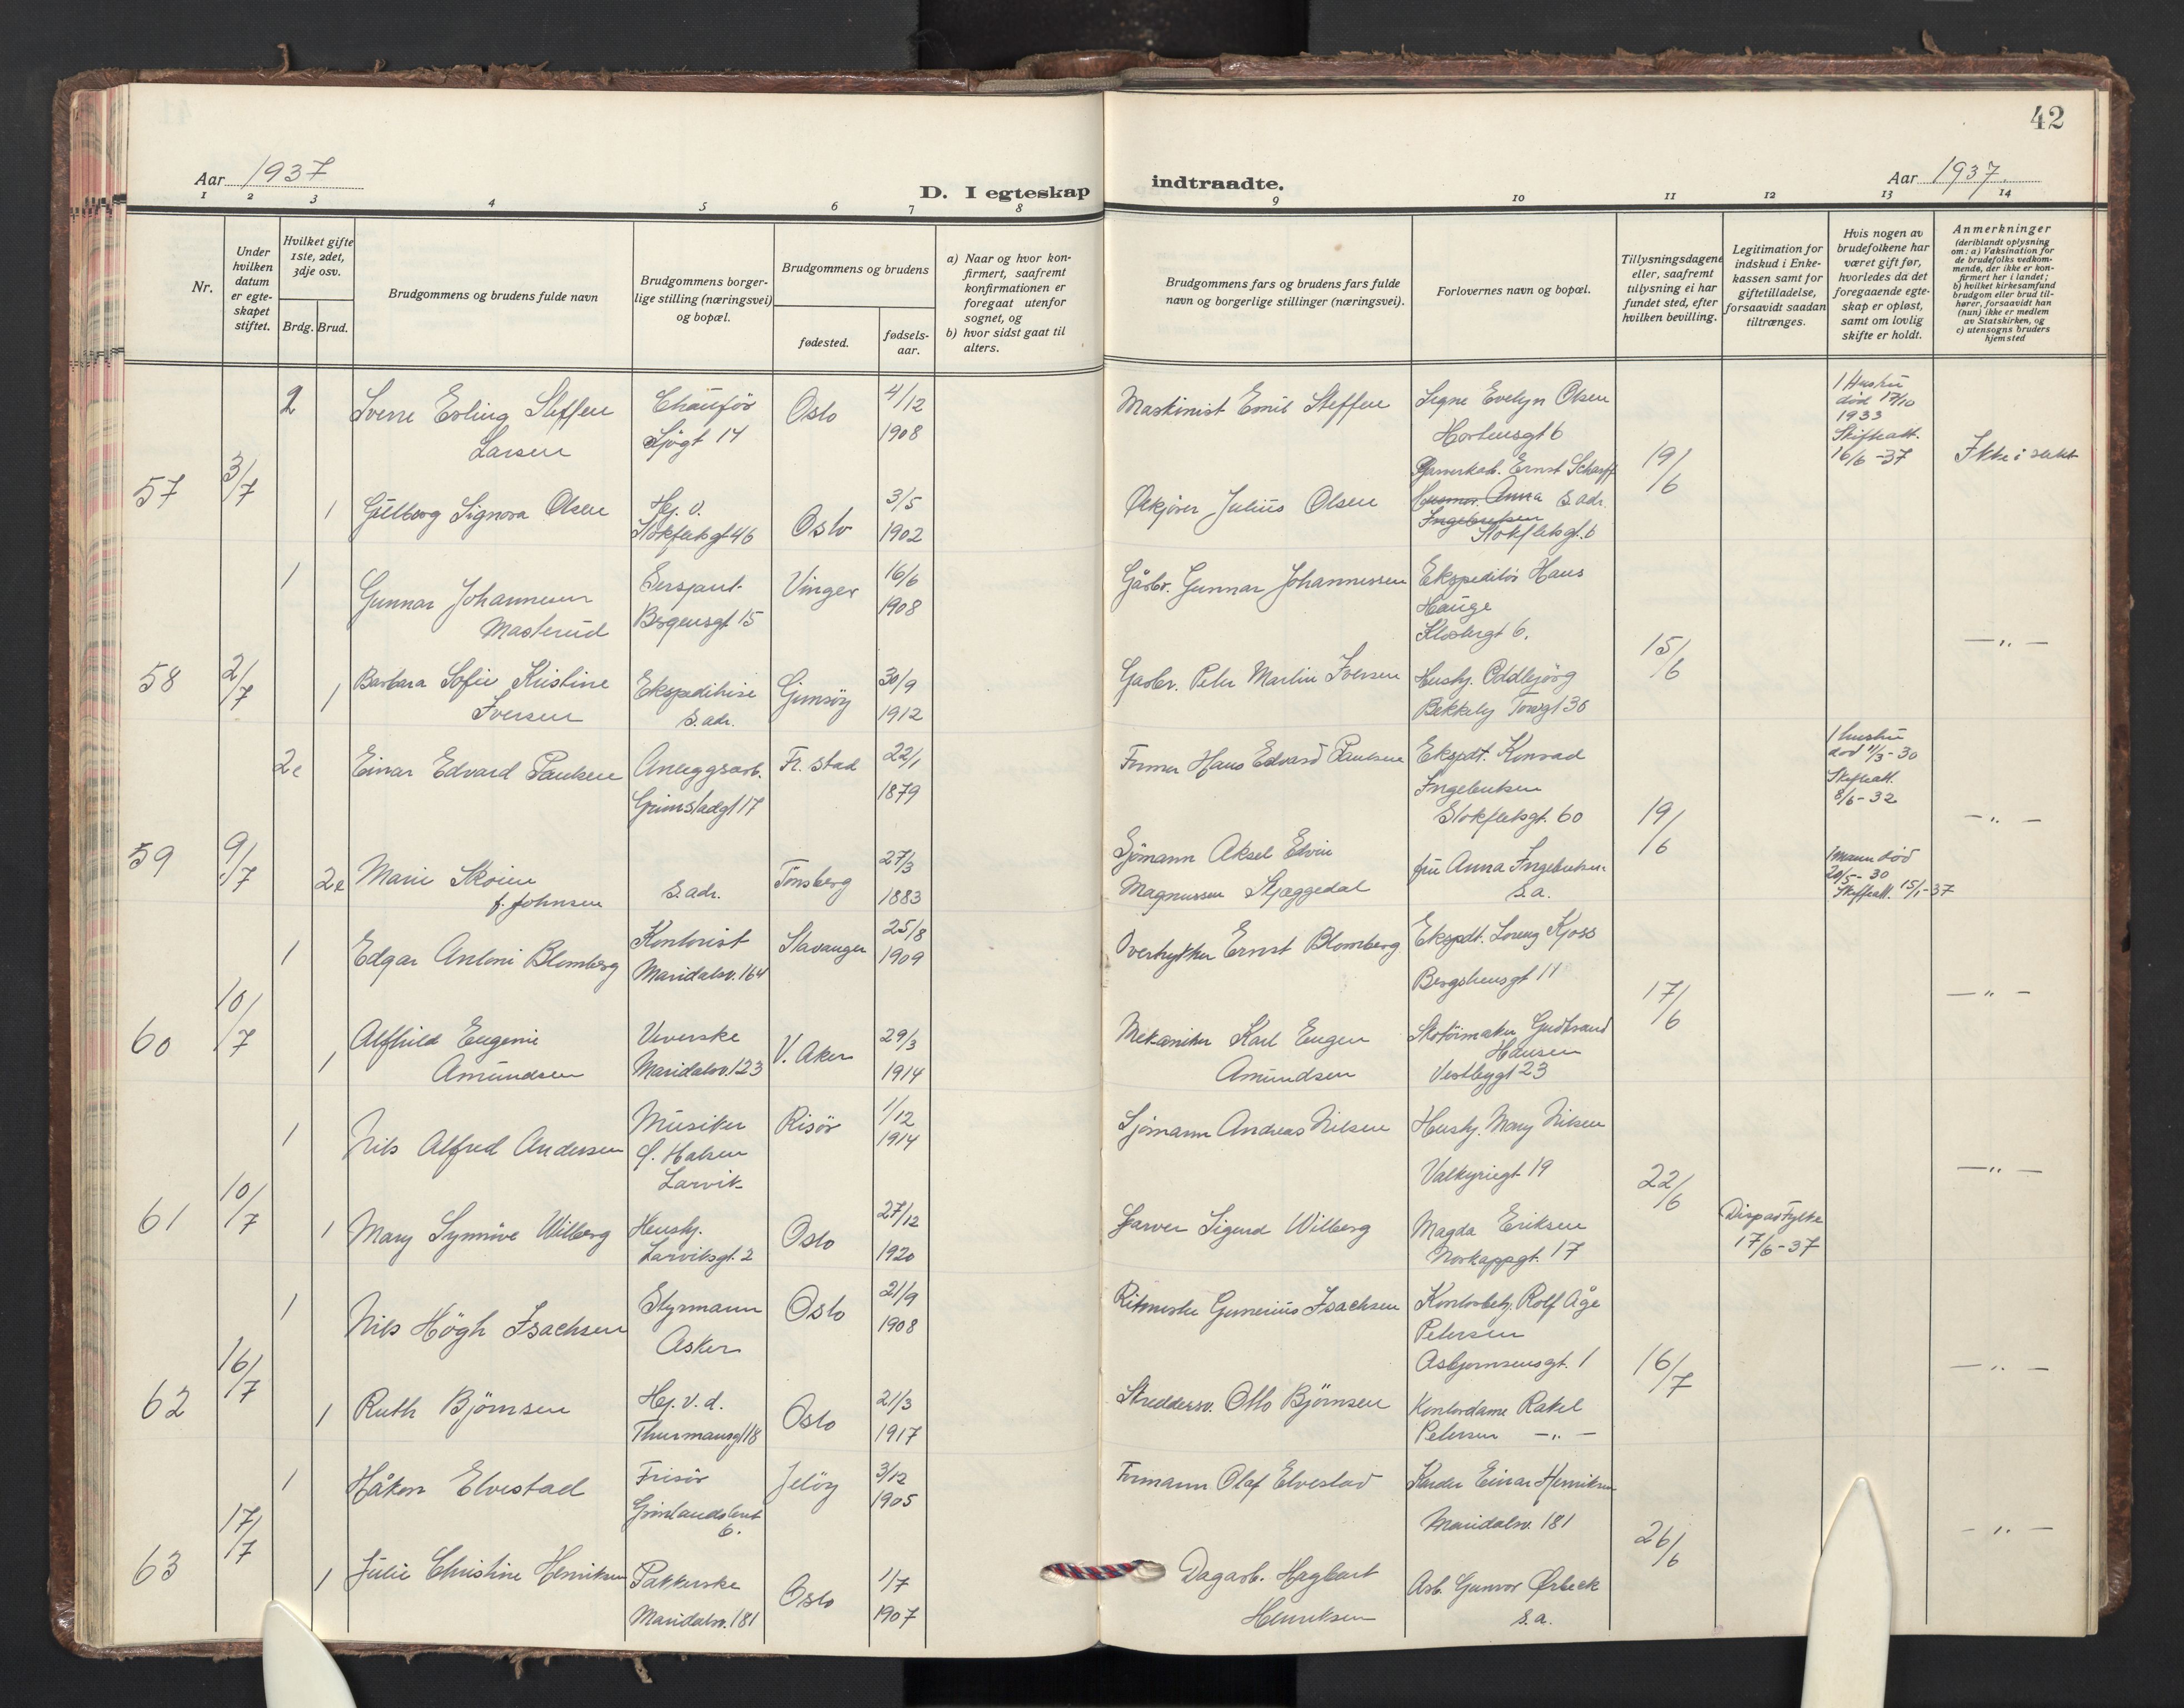 42
Aar 1937
D. I egteskap indtraadte.
Aar 1937.
1 2 3 4 5 6 7 8 9 10 11 12 13 14
Nr.
Under hvilken datum er egteskapet stiftet.
Hvilket gifte 1ste, 2det, 3dje osv.
Brdg. Brud.
Brudgommens og brudens fulde navn
Brudgommens borgerlige stilling (næringsvei) og bopæl.
Brudgommens og brudens
fødested.
fødselsaar.
a) Naar og hvor konfirmert, saafremt konfirmationen er foregaat utenfor sognet, og
b) hvor sidst gaat til alters.
Brudgommens fars og brudens fars fulde navn og borgerlige stillinger (næringsvei).
Forlovernes navn og bopæl.
Tillysningsdagene eller, saafremt tillysning ei har fundet sted, efter hvilken bevilling.
Legitimation for indskud i Enkekassen samt for giftetilladelse, forsaavidt saadan tiltrænges.
Hvis nogen av brudefolkene har været gift før, hvorledes da det foregaaende egteskap er opløst, samt om lovlig skifte er holdt.
Anmerkninger
(deriblandt oplysning om: a) Vaksination for de brudefolks vedkommende, der ikke er konfirmert her i landet; b) hvilket kirkesamfund brudgom eller brud tilhører, forsaavidt han (hun) ikke er medlem av Statskirken, og c) utensogns bruders hjemsted
57 3/7
2 Sverre Erling Steffen Larsen
Chauffør
Sjøgt 14
Oslo 4/12 1908
Maskinist Emil Steffen
Signe Evelyn Olsen
Hortensgt 6
19/6
1 Hustru
død 17/10
1933
Skifteatt.
16/6-37
Ikke i slekt
1 Gulborg Signora Olsen
Hj. v.
Stokfletsgt 46
Oslo 3/5 1902
Julius Olsen
Ernst Scharff
Husmor Anna s. adr.
Ingebretsen
Stokfletsgt. 6
58 2/7
1 Gunnar Johannesen Masterud
Sersjant
Bergensgt 15
Vinger 16/6 1908
Gårbr. Gunnar Johannessen
Ekspeditör Hans
Hauge
Klostergt 6.
15/6
— „ —
1 Barbara Sofie Kristine Iversen
Ekspeditrise
s. adr.
Gimsøy 30/9 1912
Gårbr. Peter Martin Iversen
Hushj. Oddbjörg
Bekkely Torvgt 36
59 9/7
2e Einar Edvard Paulsen
Anleggsarb.
Grimstadgt 17
Fr.stad 22/1 1879
Former Hans Edvard Paulsen
Ekspdt. Konrad
Ingebretsen
Stokfletsgt. 60
19/6
1 hustru
død 11/3-30
Skifteatt.
8/6-32
— „ —
2e Marie Skoien
f. Johnsen
s. adr.
Tönsberg 27/3 1883
Sjömann Aksel Edvin
Magnussen Skjæggedal
fru Anna Ingebretsen
s.a.
1 mann död
20/5-30
Skifteatt. 15/1-37
60 10/7
1 Edgar Antoni Blomberg
Kontorist
Maridalsv. 164
Stavanger 25/8 1909
Overtrykker Ernst Blomberg
Ekspdt. Lorenz Kjoss
Bergsliensgt 11
17/6
— „ —
1 Alfhild Eugenie Amundsen
Veverske
Maridalsv. 123
V. Aker 29/3 1914
Mekaniker Karl Eugen Amundsen
Skotöimaker Gudbrand
Hansen
Vestbygt 23
61 10/7
1 Nils Alfred Andersen
Musiker
f. Halsen
Larvik
Risör 1/12 1914
Sjömann Andreas Nilsen
Hushj. Mary Nilsen
Valkyriegt 19
22/6
— „ —
1 Mary Synnöve Wilberg
Hushj.
Larviksgt. 2
Oslo 27/12 1920
Garver Sigurd Wilberg
Magda Eriksen
Norkappgt. 17
Disp. a Fylke
17/6-37
62 16/7
1 Nils Högh Isachsen
Styrmann
Asker
Oslo 21/9 1908
Ritmester Gunerius Isachsen
Kontorbetj. Rolf Åge
Petersen
Asbjørnsensgt. 1
16/7
— „ —
1 Ruth Björnsen
Hj. v. d.
Thurmansgt 18
Oslo 21/3 1917
Skreddersv. Otto Björnsen
Kontordame Rakel
Petersen — „ —
63 17/7
1 Håkon Elvestad
Frisör
Grönlandsleret
6.
Jelöy 3/12 1905
Formann Olaf Elvestad
Einar Henriksen
Maridalsv. 181
26/6
— „ —
1 Julie Christine Henriksen
Pakkerske
Maridalsv. 181
Oslo 1/7 1907
Dagarb. Hagbart
Henriksen
Arb. Gunvor Ørbeck
s.a.